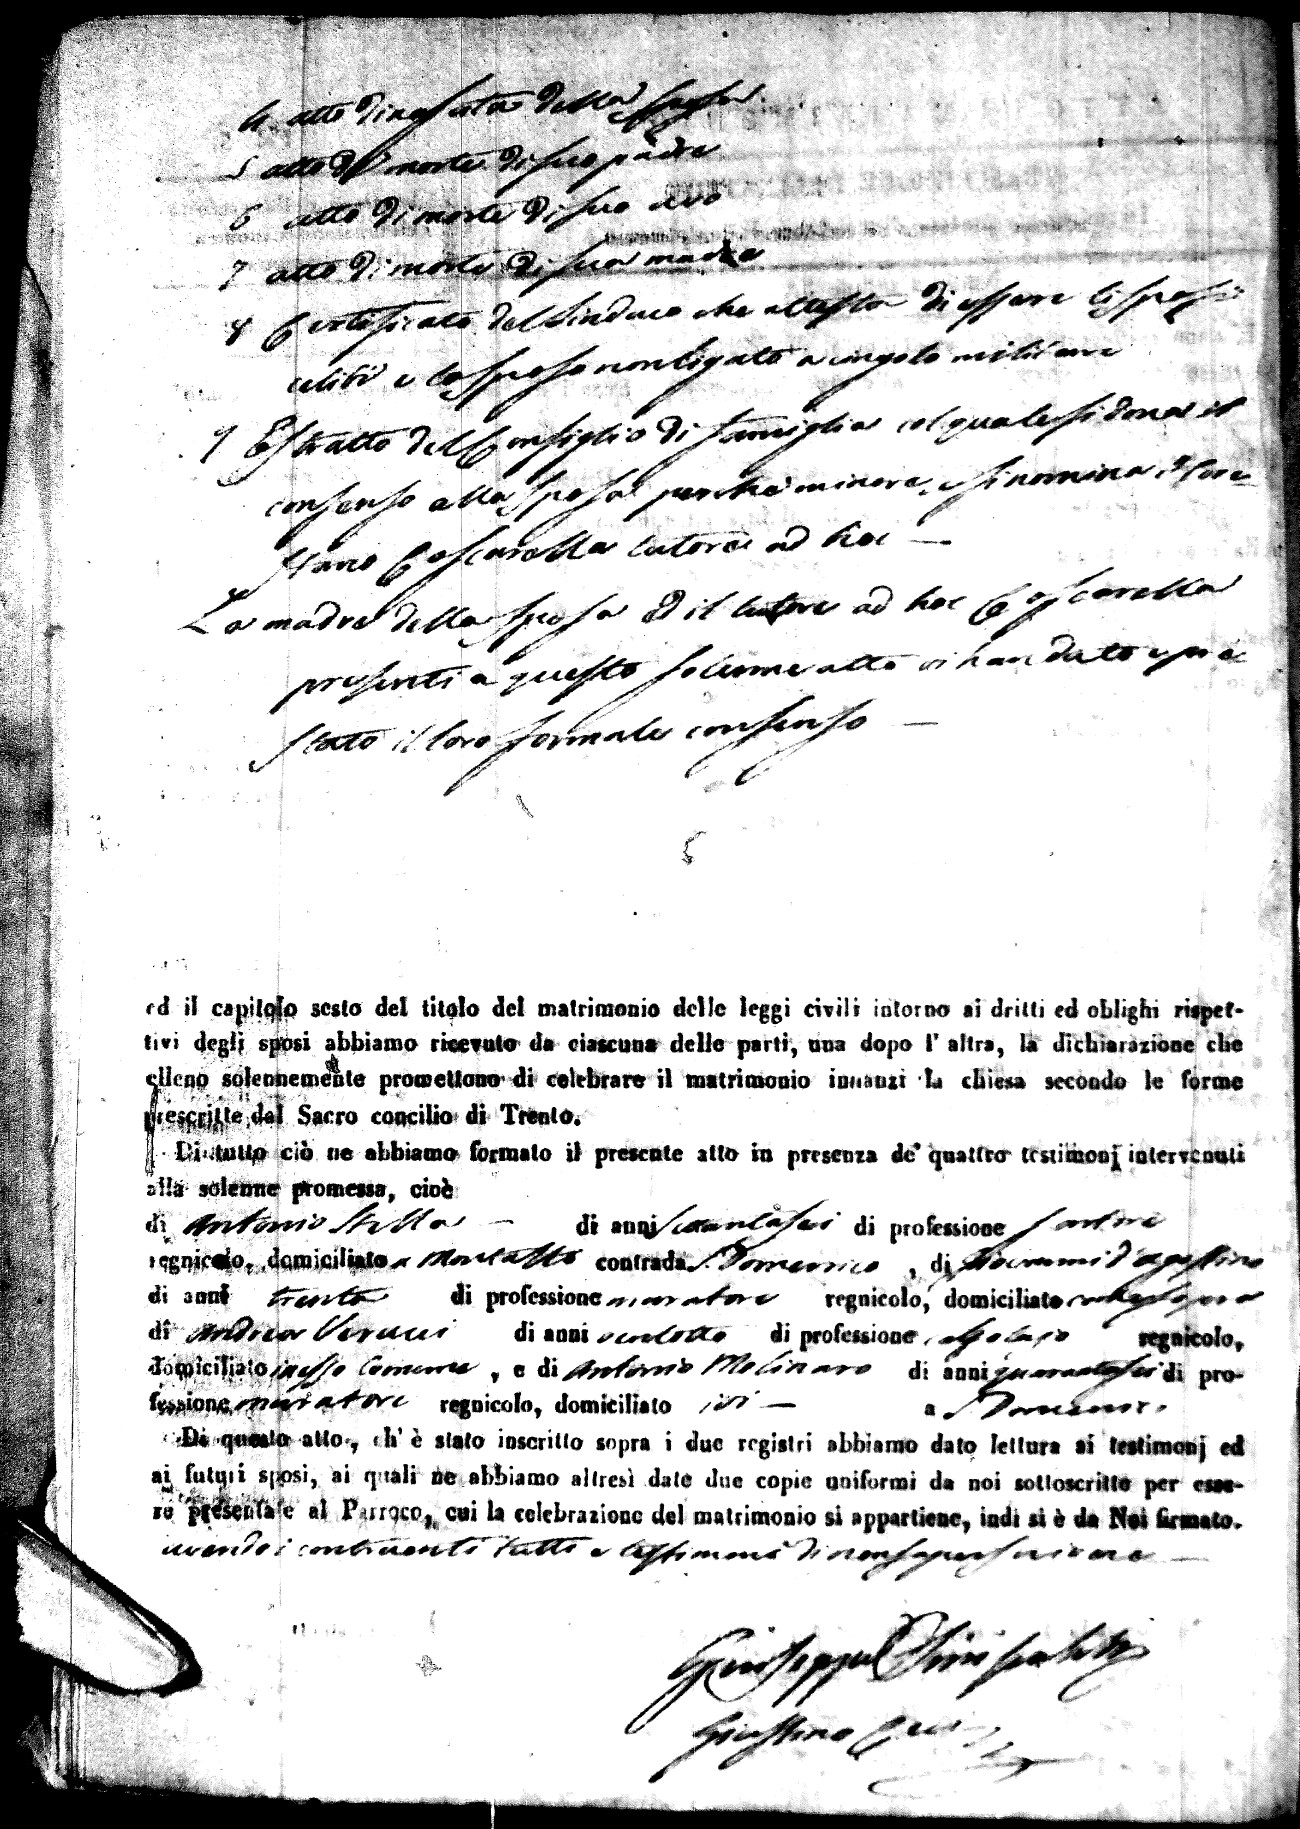 4 atto di nascita della sposa
5 atto di morte di suo padre
6 atto di morte di suo avo
7 atto di morte di sua madre
8 Certificato del Sindaco che attesta di essere li sposi
celibi e lo sposo non ligato a cingolo militare
9 Estratto del Consiglio di famiglia col quale si dona il
consenso alla sposa perche minore, e si nomina
Coscarella tutore ad hoc —
La madre della sposa ed il tutore ad hoc Coscarella
presenti a questo solenne atto vi han dato e pre
stato il loro formale consenso —
ed il capitolo sesto del titolo del matrimonio delle leggi civili intorno ai dritti ed oblighi rispet-
tivi degli sposi abbiamo ricevuto da ciascuna delle parti, una dopo l'altra, la dichiarazione che
elleno solennemente promettono di celebrare il matrimonio innanzi la chiesa secondo le forme
prescritte dal Sacro concilio di Trento.
Di tutto ciò ne abbiamo formato il presente atto in presenza de' quattro testimonj intervenuti
alla solenne promessa, cioè
di Antonio Stella — di anni di professione sartore
regnicolo, domiciliato a Montalto contrada S. Domenico , di Giovanni d'agostino
di anni trenta di professione muratore regnicolo, domiciliato come sopra
di Andrea Verucci di anni ventotto di professione regnicolo,
domiciliato in esso Comune , e di Antonio Molinaro di anni quarantasei di pro-
fessione muratore regnicolo, domiciliato ivi — a S. Domenico
Di questo atto, ch' è stato inscritto sopra i due registri abbiamo dato lettura ai testimonj ed
ai futuri sposi, ai quali ne abbiamo altresì date due copie uniformi da noi sottoscritte per esse-
re presentate al Parroco, cui la celebrazione del matrimonio si appartiene, indi si è da Noi firmato.
avendo i contraenti tutti e testimoni di non saper scrivere —
Giuseppe
Giustino